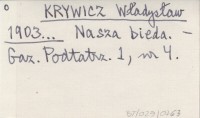 KRYWICZ Władysław
1903... Nasza bieda. -
Gaz. Podtatrz. 1, nr 4.